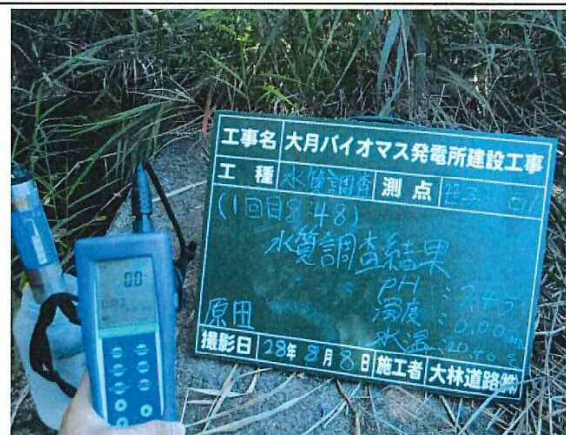 工事名 大月バイオマス発電所建設工事
工種 水質調査 測点
(1回目 8:48)
水質調査結果
PH :
濁度 : 0.00
水温 :
原田
撮影日 28年 8月 8日 施工者 大林道路㈱
00